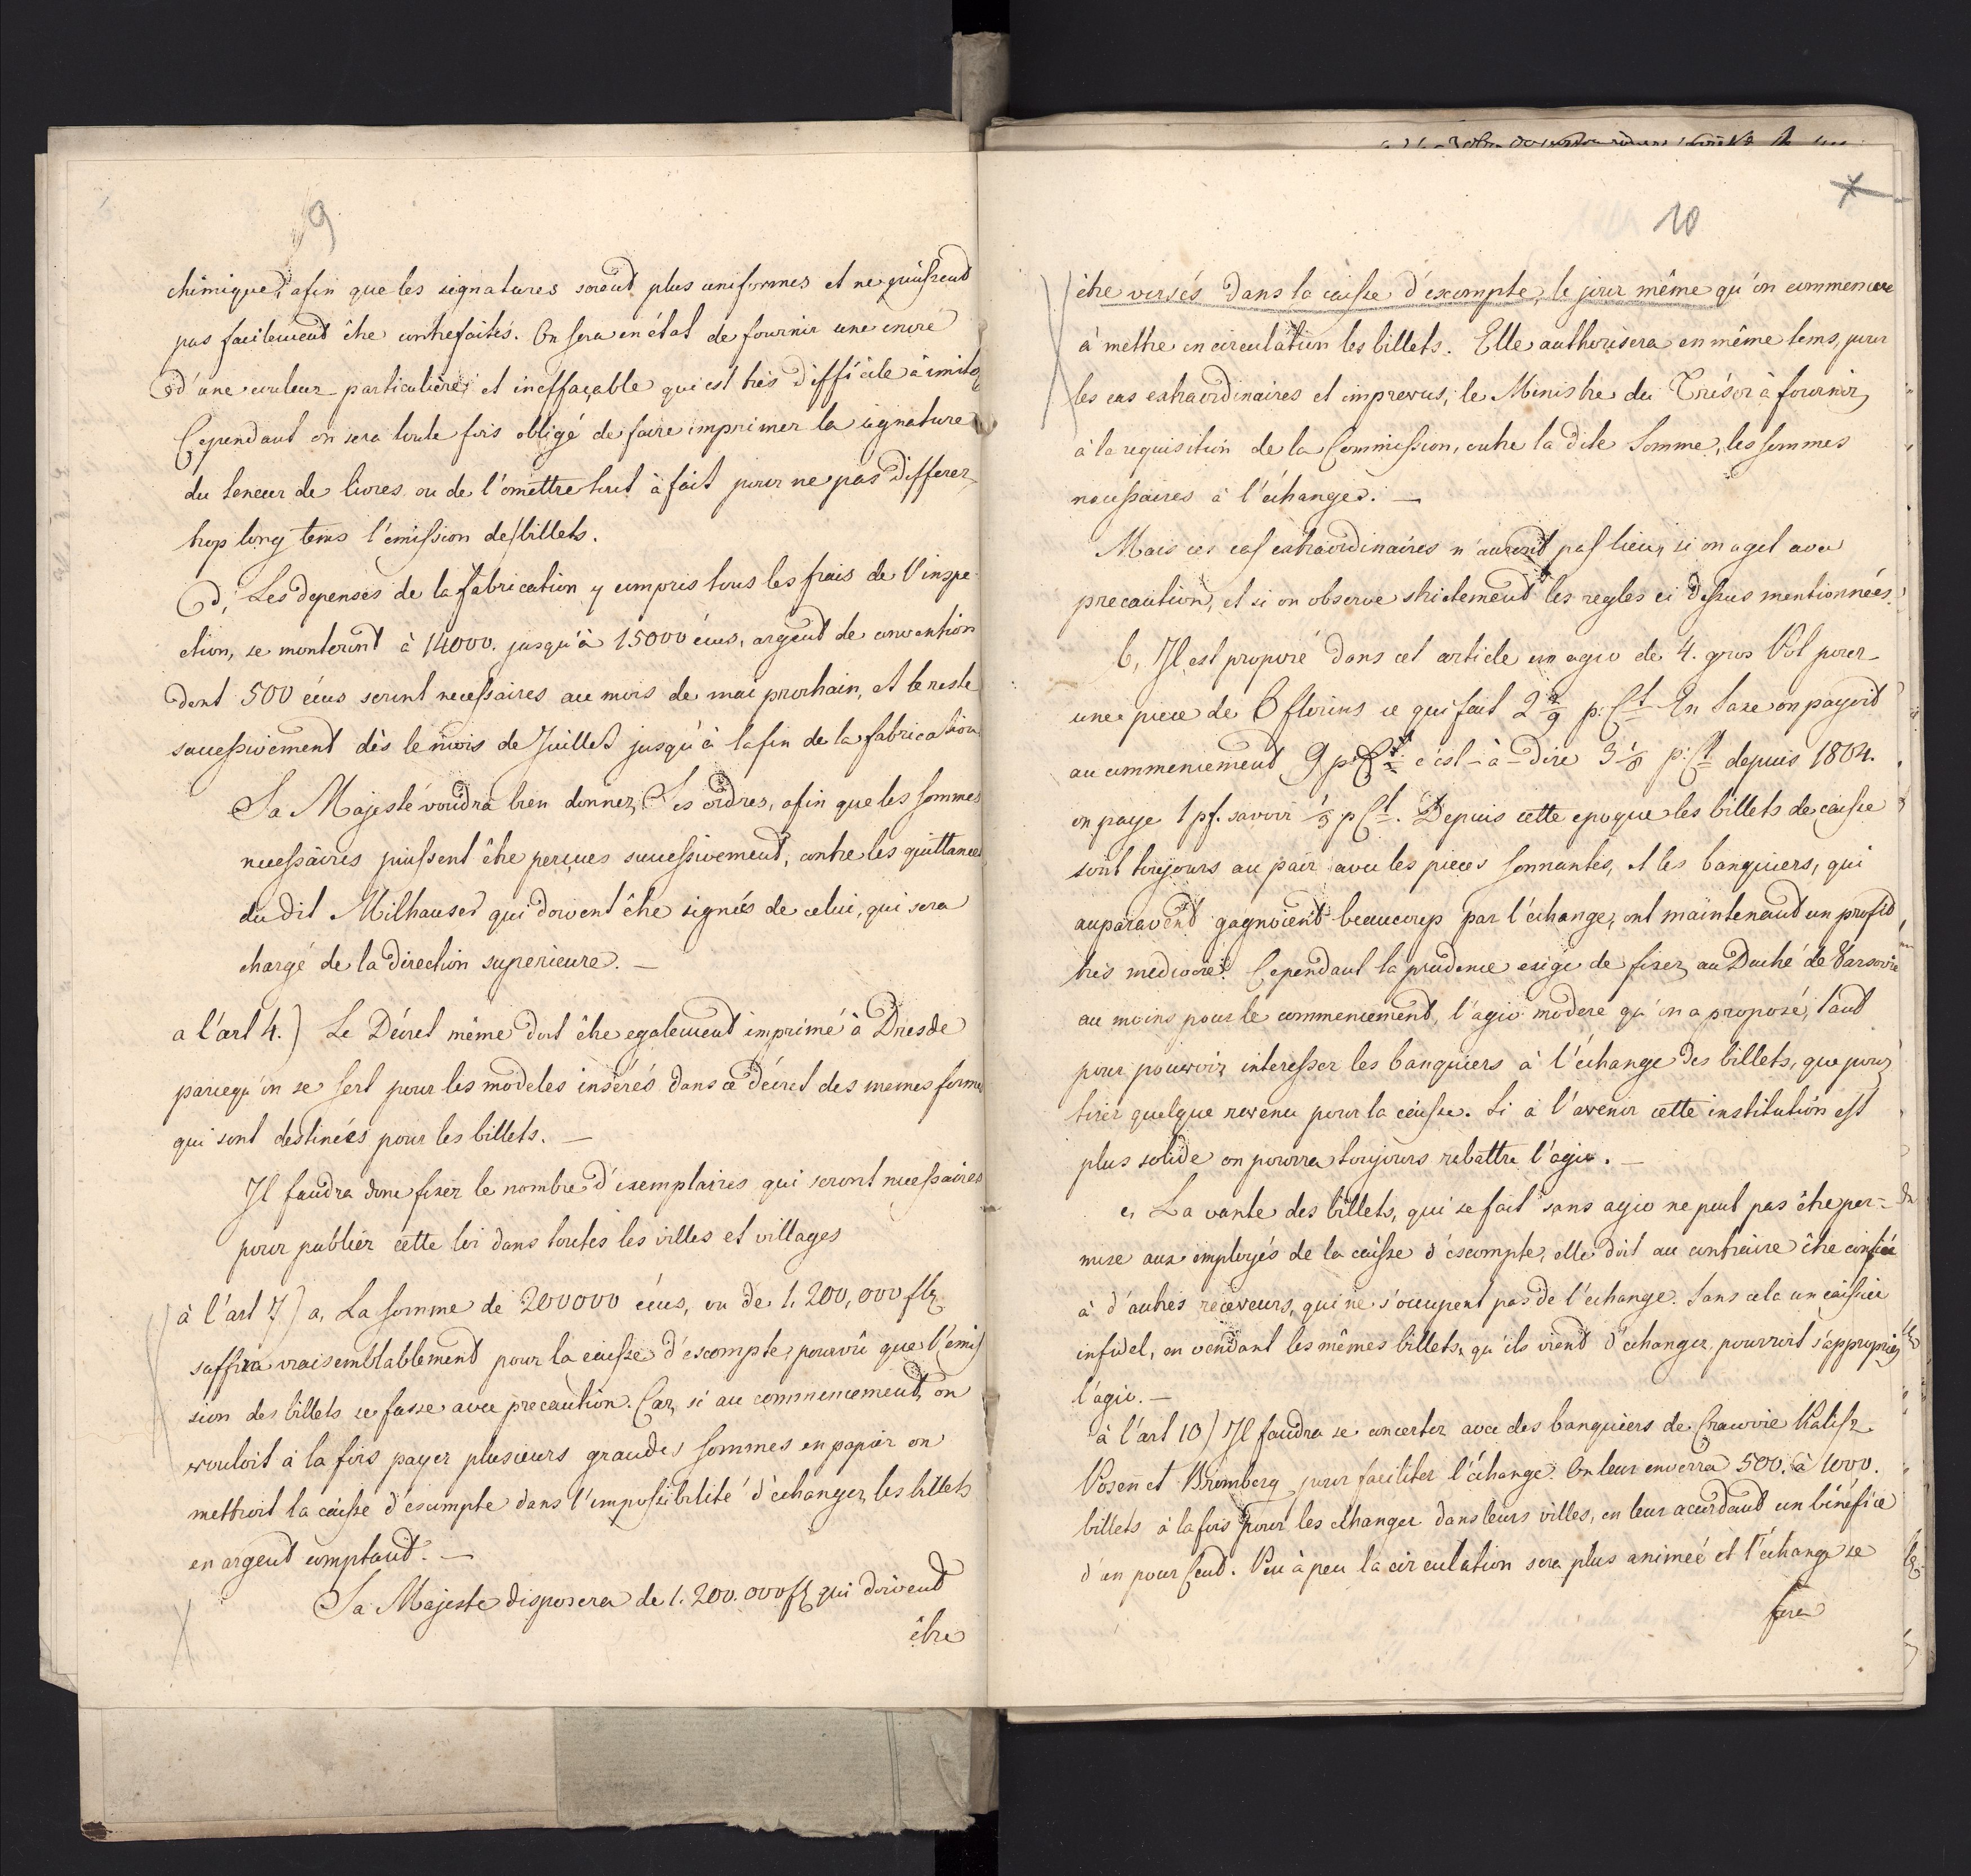 9
chimique, afin que les signatures soient plus uniformes et ne puissent
pas facilement être contrefaites. On sera en état de fournir une encre
d'une couleur particulière et ineffaçable qui est très difficile à imiter
Cependant on sera toute fois obligé de faire imprimer la signature
du teneur de livres ou de l'omettre tout à fait pour ne pas differer
trop long tems l'emission des billets.
d, Les depenses de la fabrication y compris tous les frais de l'inspe-
ction, se monteront à 14000. jusqu'à 15000 écus, argent de convention
dont 500 écus seront necessaires au mois de mai prochain, et le reste
successivement dès le mois de Juillet jusqu'à la fin de la fabrication.
Sa Majesté voudra bien donner Ses ordres, afin que les sommes
necessaires puissent être perçues successivement, contre les quittances
du dit Milhauser qui doivent être signées de celui, qui sera
chargé de la direction superieure. —
a l'art 4.) Le Décret même doit être egalement imprimé à Dresde
parcequ'on se sert pour les modeles insérés dans ce décret des memes formes
qui sont destinées pour les billets. —
Il faudra donc fixer le nombre d'exemplaires qui seront necessaires
pour publier cette loi dans toutes les villes et villages
à l'art 7) a, La somme de 200000 écus, ou de 1,200,000 fl
suffira vraisemblablement pour la caisse d'escompte, pourvû que l'emis
sion des billets se fasse avec precaution. Car, si au commencement, on
vouloit à la fois payer plusieurs grandes sommes en papier on
mettroit la caisse d'escompte dans l'impossibilité d'échanger les billets
en argent comptant. —
Sa Majeste disposera de 1.200.000 fl qui doivent
être
10
être versés dans la caisse d'éxcompte, le jour même qu'on commencera
à mettre en circulation les billets. Elle authorisera en même tems, pour
les cas extraordinaires et imprevus, le Ministre du Trésor à fournir
à la requisition de la Commission, outre la dite Somme, les sommes
necessaires à l'échange. —
Mais ces cas extraordinaires n'auront pas lieu, si on agit avec
precaution, et si on observe strictement les regles ci dessus mentionnées.
b, Il est proposé dans cet article un agio de 4. gros Pol pour
une piece de 6 florins ce qui fait 2 2/9 p: Ct. En Saxe on payoit
au commencement 9 p. c'est-à-dire 3 1/8 p: Ct depuis 1804.
on paye 1 pf. savoir p Ct. Depuis cette epoque les billets de caisse
sont toujours au pair avec les pieces sonnantes, et les banquiers, qui
auparavent gagnoient beaucoup par l'échange, ont maintenant un profit
très mediocre. Cependant la prudence exige de fixer au Duché de Varsovie
au moins pour le commencement, l'agio modere qu'on a proposé, tant
pour pouvoir interesser les banquiers à l'échange des billets, que pour
tirer quelque revenu pour la caisse. Si à l'avenir cette institution est
plus solide on pourra toujours rebattre l'agio. —
c, La vante des billets, qui se fait sans agio ne peut pas être per-
mise aux employés de la caisse d'éscompte, elle doit au contraire être confiée
à d'autres receveurs, qui ne s'occupent pas de l'échange. Sans cela un caissier
infidel, en vendant les mêmes billets, qu'ils vient d'échanger, pourroit s'approprier
l'agio. —
à l'art 10) Il faudra se concerter avec des banquiers de Cracovie Kalisz
Posen et Bromberg pour faciliter l'échange. On leur enverra 500. à 1000.
billets à la fois pour les échanger dans leurs villes, en leur accordant un bénéfice
d'un pour Cent. Peu à peu la circulation sera plus animeé et l'échange se
fera